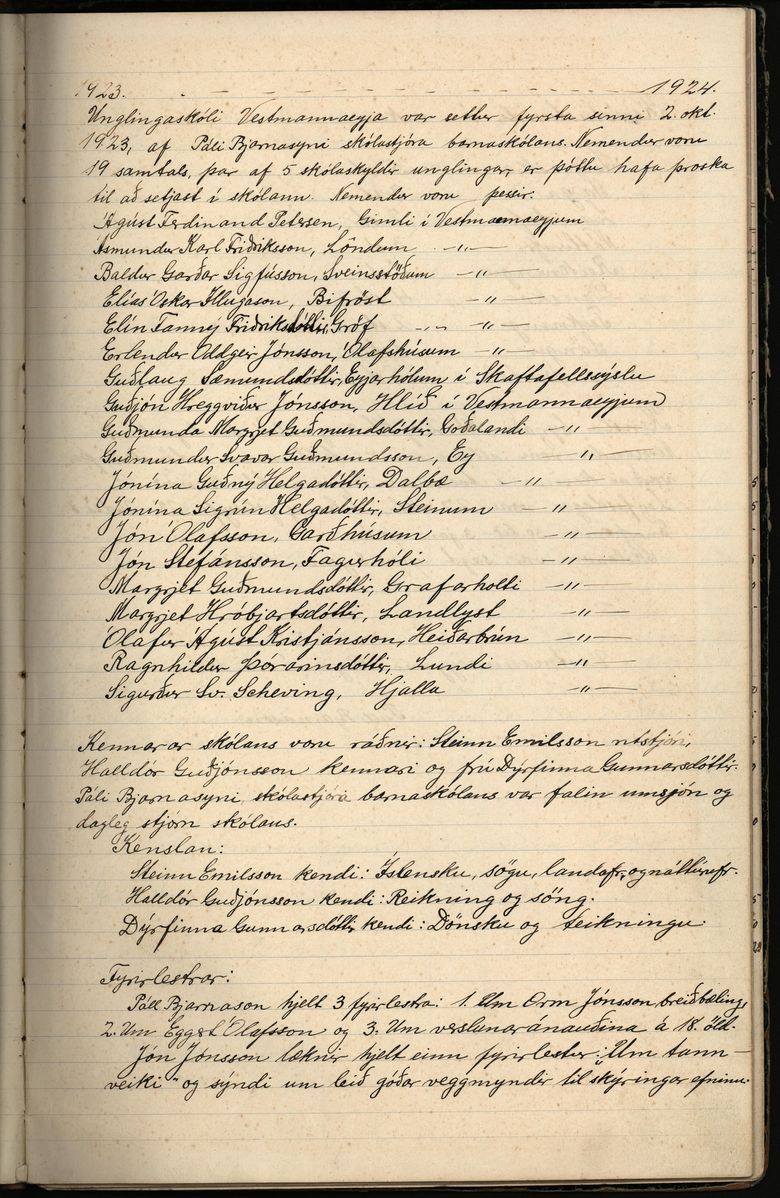 1923. 1924.
Unglingaskóli Vestmannaeyja var settur fyrsta sinni 2. okt.
1923, af Páli Bjarnasyni skólastjóra barnaskólans. Nemendur voru
19 samtals, þar af 5 skólaskyldir unglingar, er þóttu hafa þroska
til að setjast í skólann. Nemendur voru þessir:
Ágúst Ferdinand Petersen, Gimli í Vestmannaeyjum
Ásmundur Karl Friðriksson, Löndum -"-
Baldur Garðar Sigfússon, Sveinsstöðum -"-
Elías Óskar Illugason, Bifröst -"-
Elín Fanný Friðriksdóttir, Gröf -"- -"-
Erlendur Oddgeir Jónsson, Ólafshúsum -"-
Guðlaug Sæmundsdóttir, Eyjarhólum í Skaftafellssýslu
Guðjón Hreggviður Jónsson, Hlíð í Vestmannaeyjum
Guðmunda Margrjet Guðmundsdóttir, Goðalandi -"-
Guðmundur Svavar Guðmundsson, Ey "-
Jónína Guðný Helgadóttir, Dalbæ -"-
Jónína Sigrún Helgadóttir, Steinum -"-
Jón Ólafsson, Garðhúsum -"-
Jón Stefánsson, Fagurhóli -"-
Margrjet Guðmundsdóttir, Grafarholti -"-
Margrjet Hróbjartsdóttir, Landlyst -"-
Ólafur Ágúst Kristjánsson, Heiðarbrún -"-
Ragnhildur Þórarinsdóttir, Lundi -"-
Sigurður Sv. Scheving, Hjalla -"-
Kennarar skólans voru ráðnir: Steinn Emilsson ritstjóri,
Halldór Guðjónsson kennari og frú Dýrfinna Gunnarsdóttir.
Páli Bjarnasyni, skólastjóra barnaskólans var falin umsjón og
dagleg stjórn skólans.
Kenslan:
Steinn Emilsson kendi: Íslensku, sögu, landafr. og náttúrufr.
Halldór Guðjónsson kendi: Reikning og söng.
Dýrfinna Gunnarsdóttir kendi: Dönsku og teikningu.
Fyrirlestrar:
Páll Bjarnason hjelt 3 fyrirlestra: 1. Um Orm Jónsson, breiðbæling,
2. Um Eggert Ólafsson og 3. Um verslunaránauðina á 18. öld.
Jón Jónsson læknir hjelt einn fyrirlestur: „Um tann-
veiki" og sýndi um leið góðar veggmyndir til skýringar efninu.